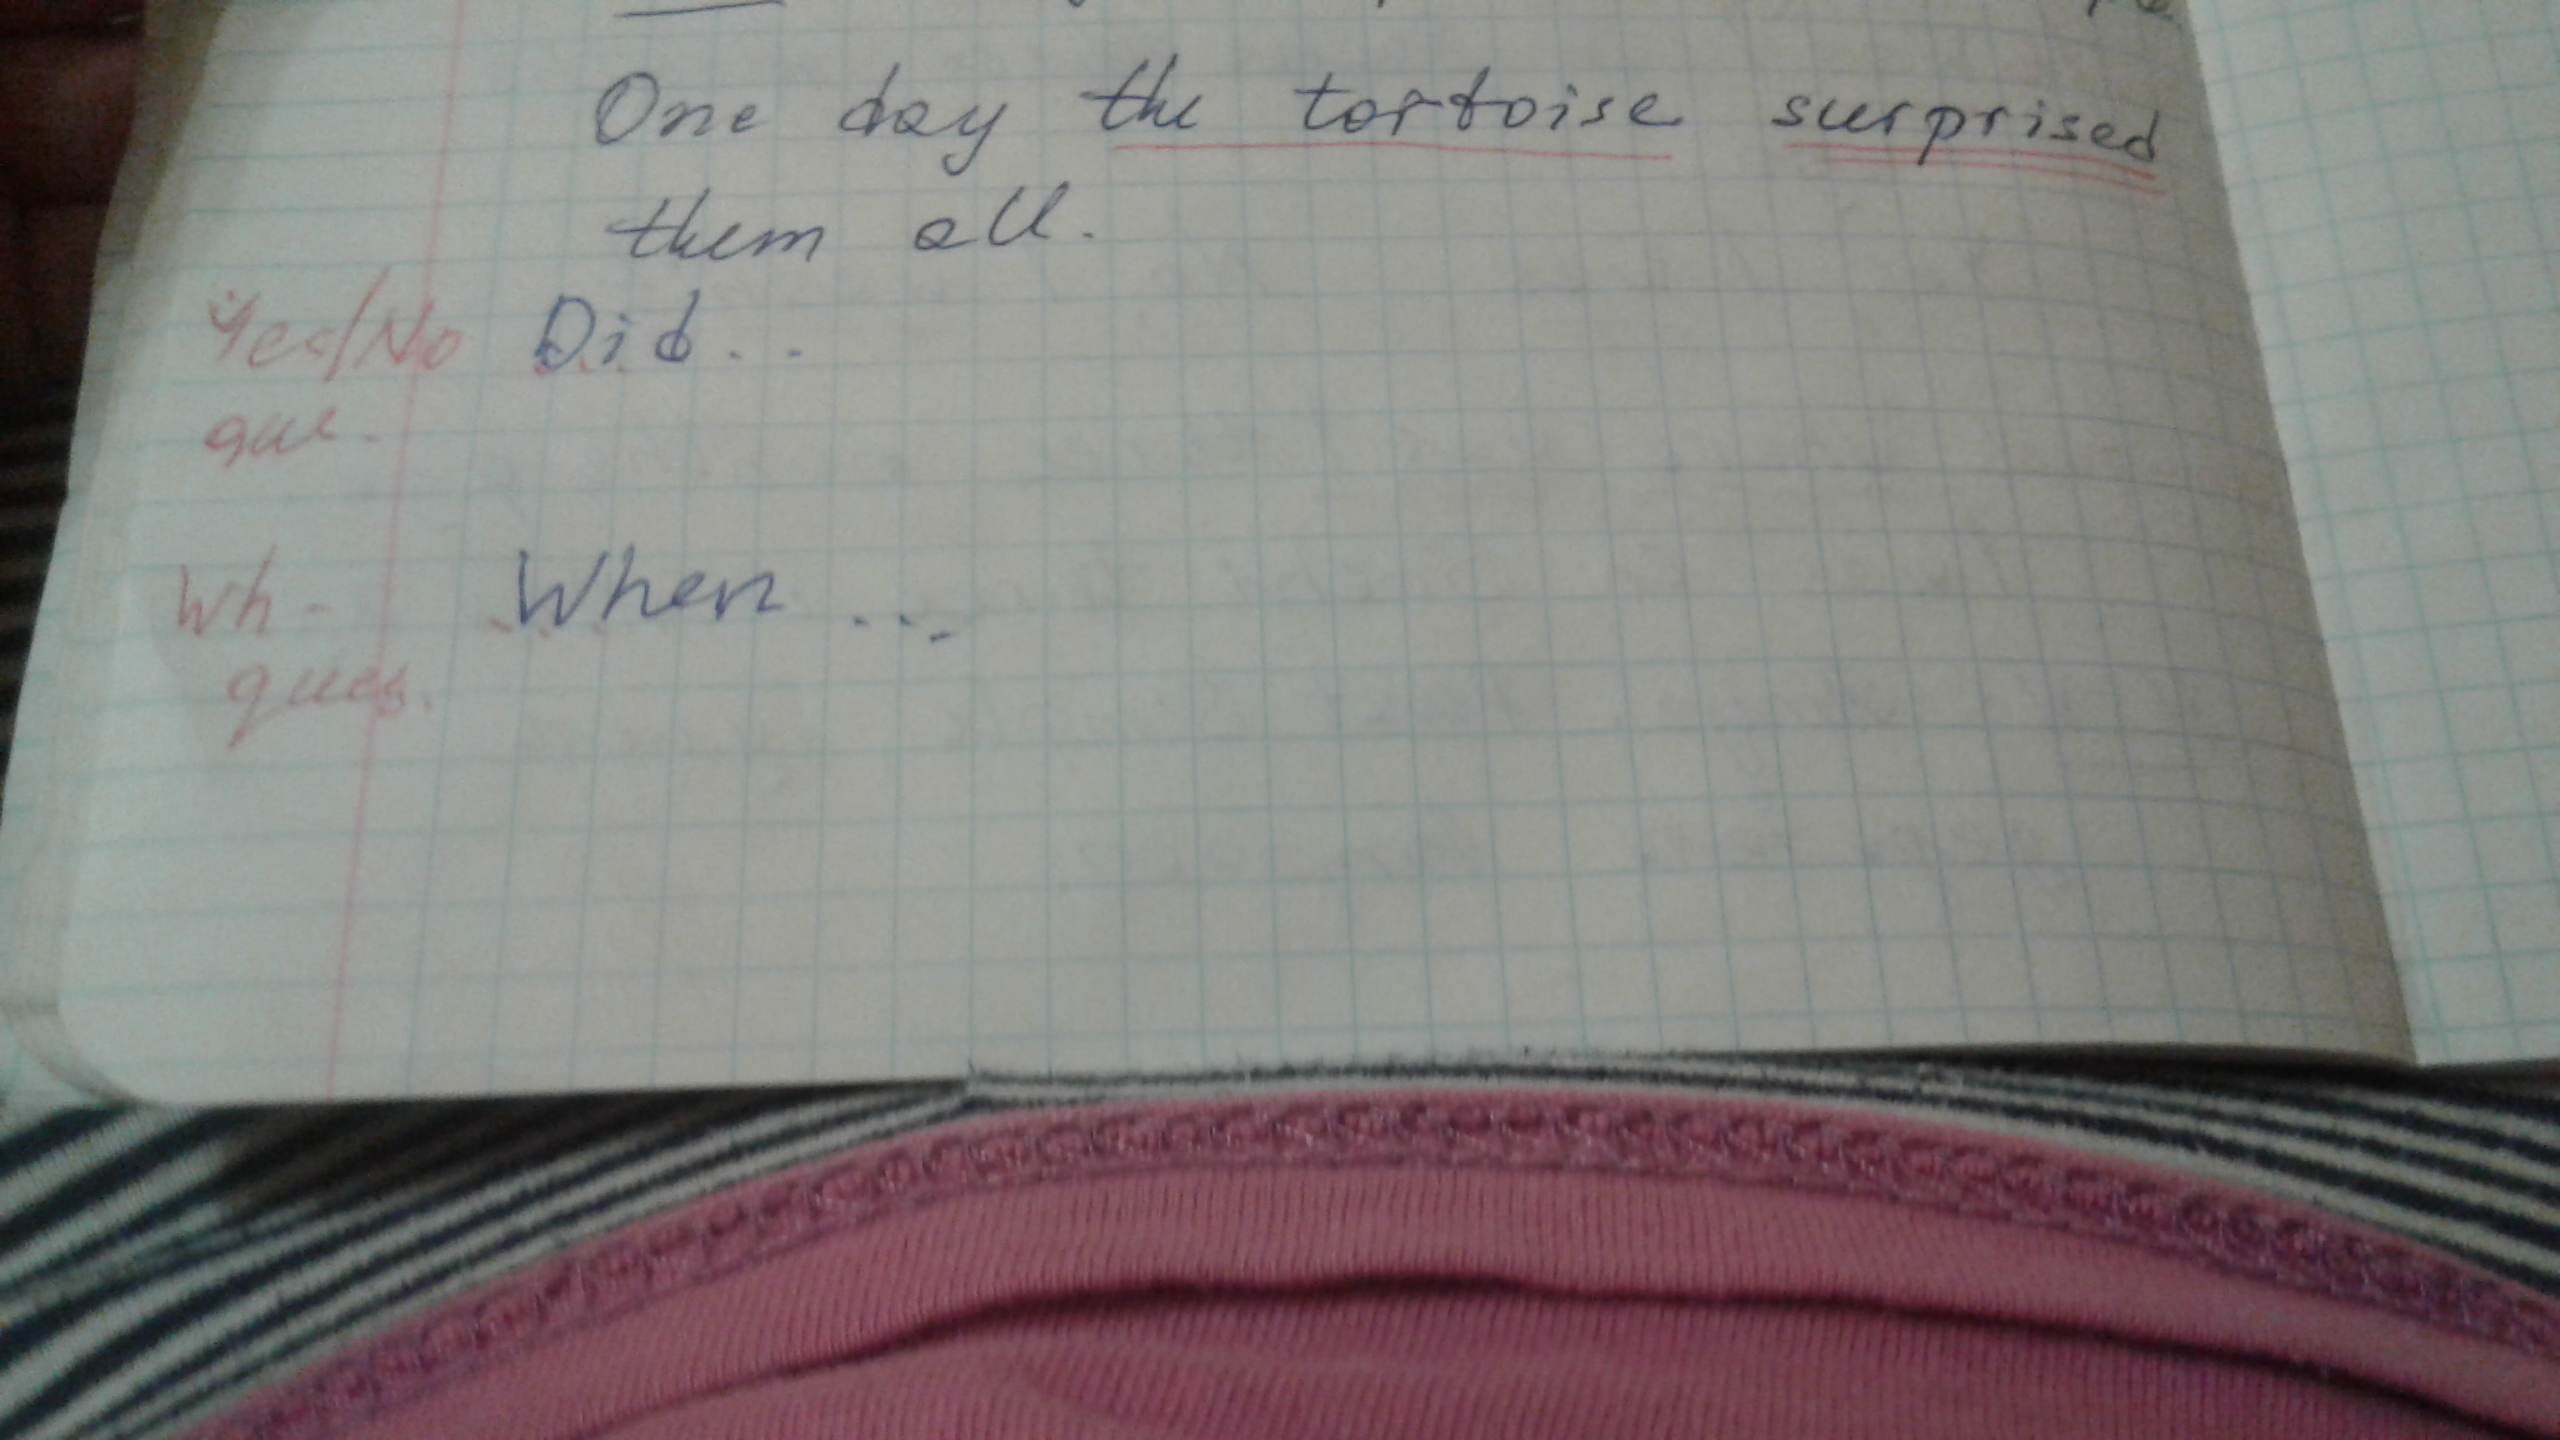 One day the tortoise surprised
them all.
Yes/No Did...
que.
Wh- When ...
ques.